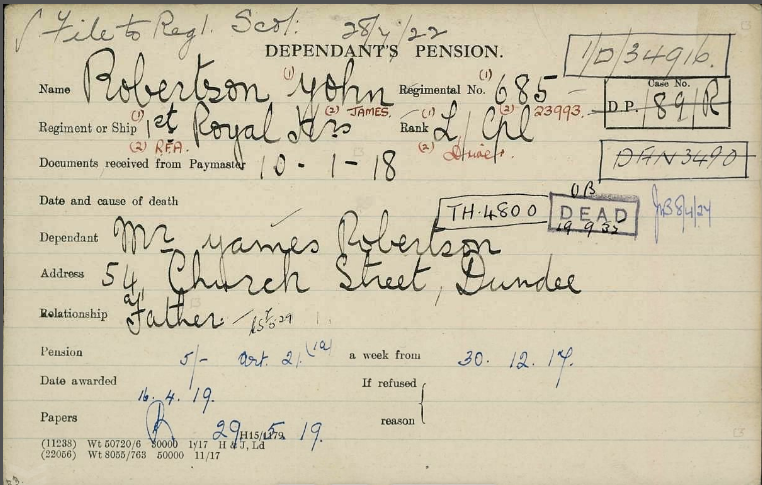 ✓ File to Regl. Scot: 28/4/22
DEPENDANT'S PENSION.
1/D/34916.
Name Robertson (1) John Regimental No. (1) 685
(2) JAMES. (2) 23993.
Case No.
D.P. 89/R
Regiment or Ship (1) 1st Royal Hrs Rank (1) L/Cpl
(2) R.F.A. (2) Driver.
Documents received from Paymaster 10 - 1 - 18
DAN3490
Date and cause of death
TH.4800 DEAD
19 9 35
Dependant Mr James Robertson
Address 54, Church Street, Dundee
Relationship Father
Pension 5/- Art. 21 (1a) a week from 30. 12. 17.
Date awarded 16. 4. 19. If refused
reason
Papers R 29 5 19.
H15/1179
(11238) Wt 50720/6 30000 1/17 H & J, Ld
(22056) Wt 8055/763 50000 11/17